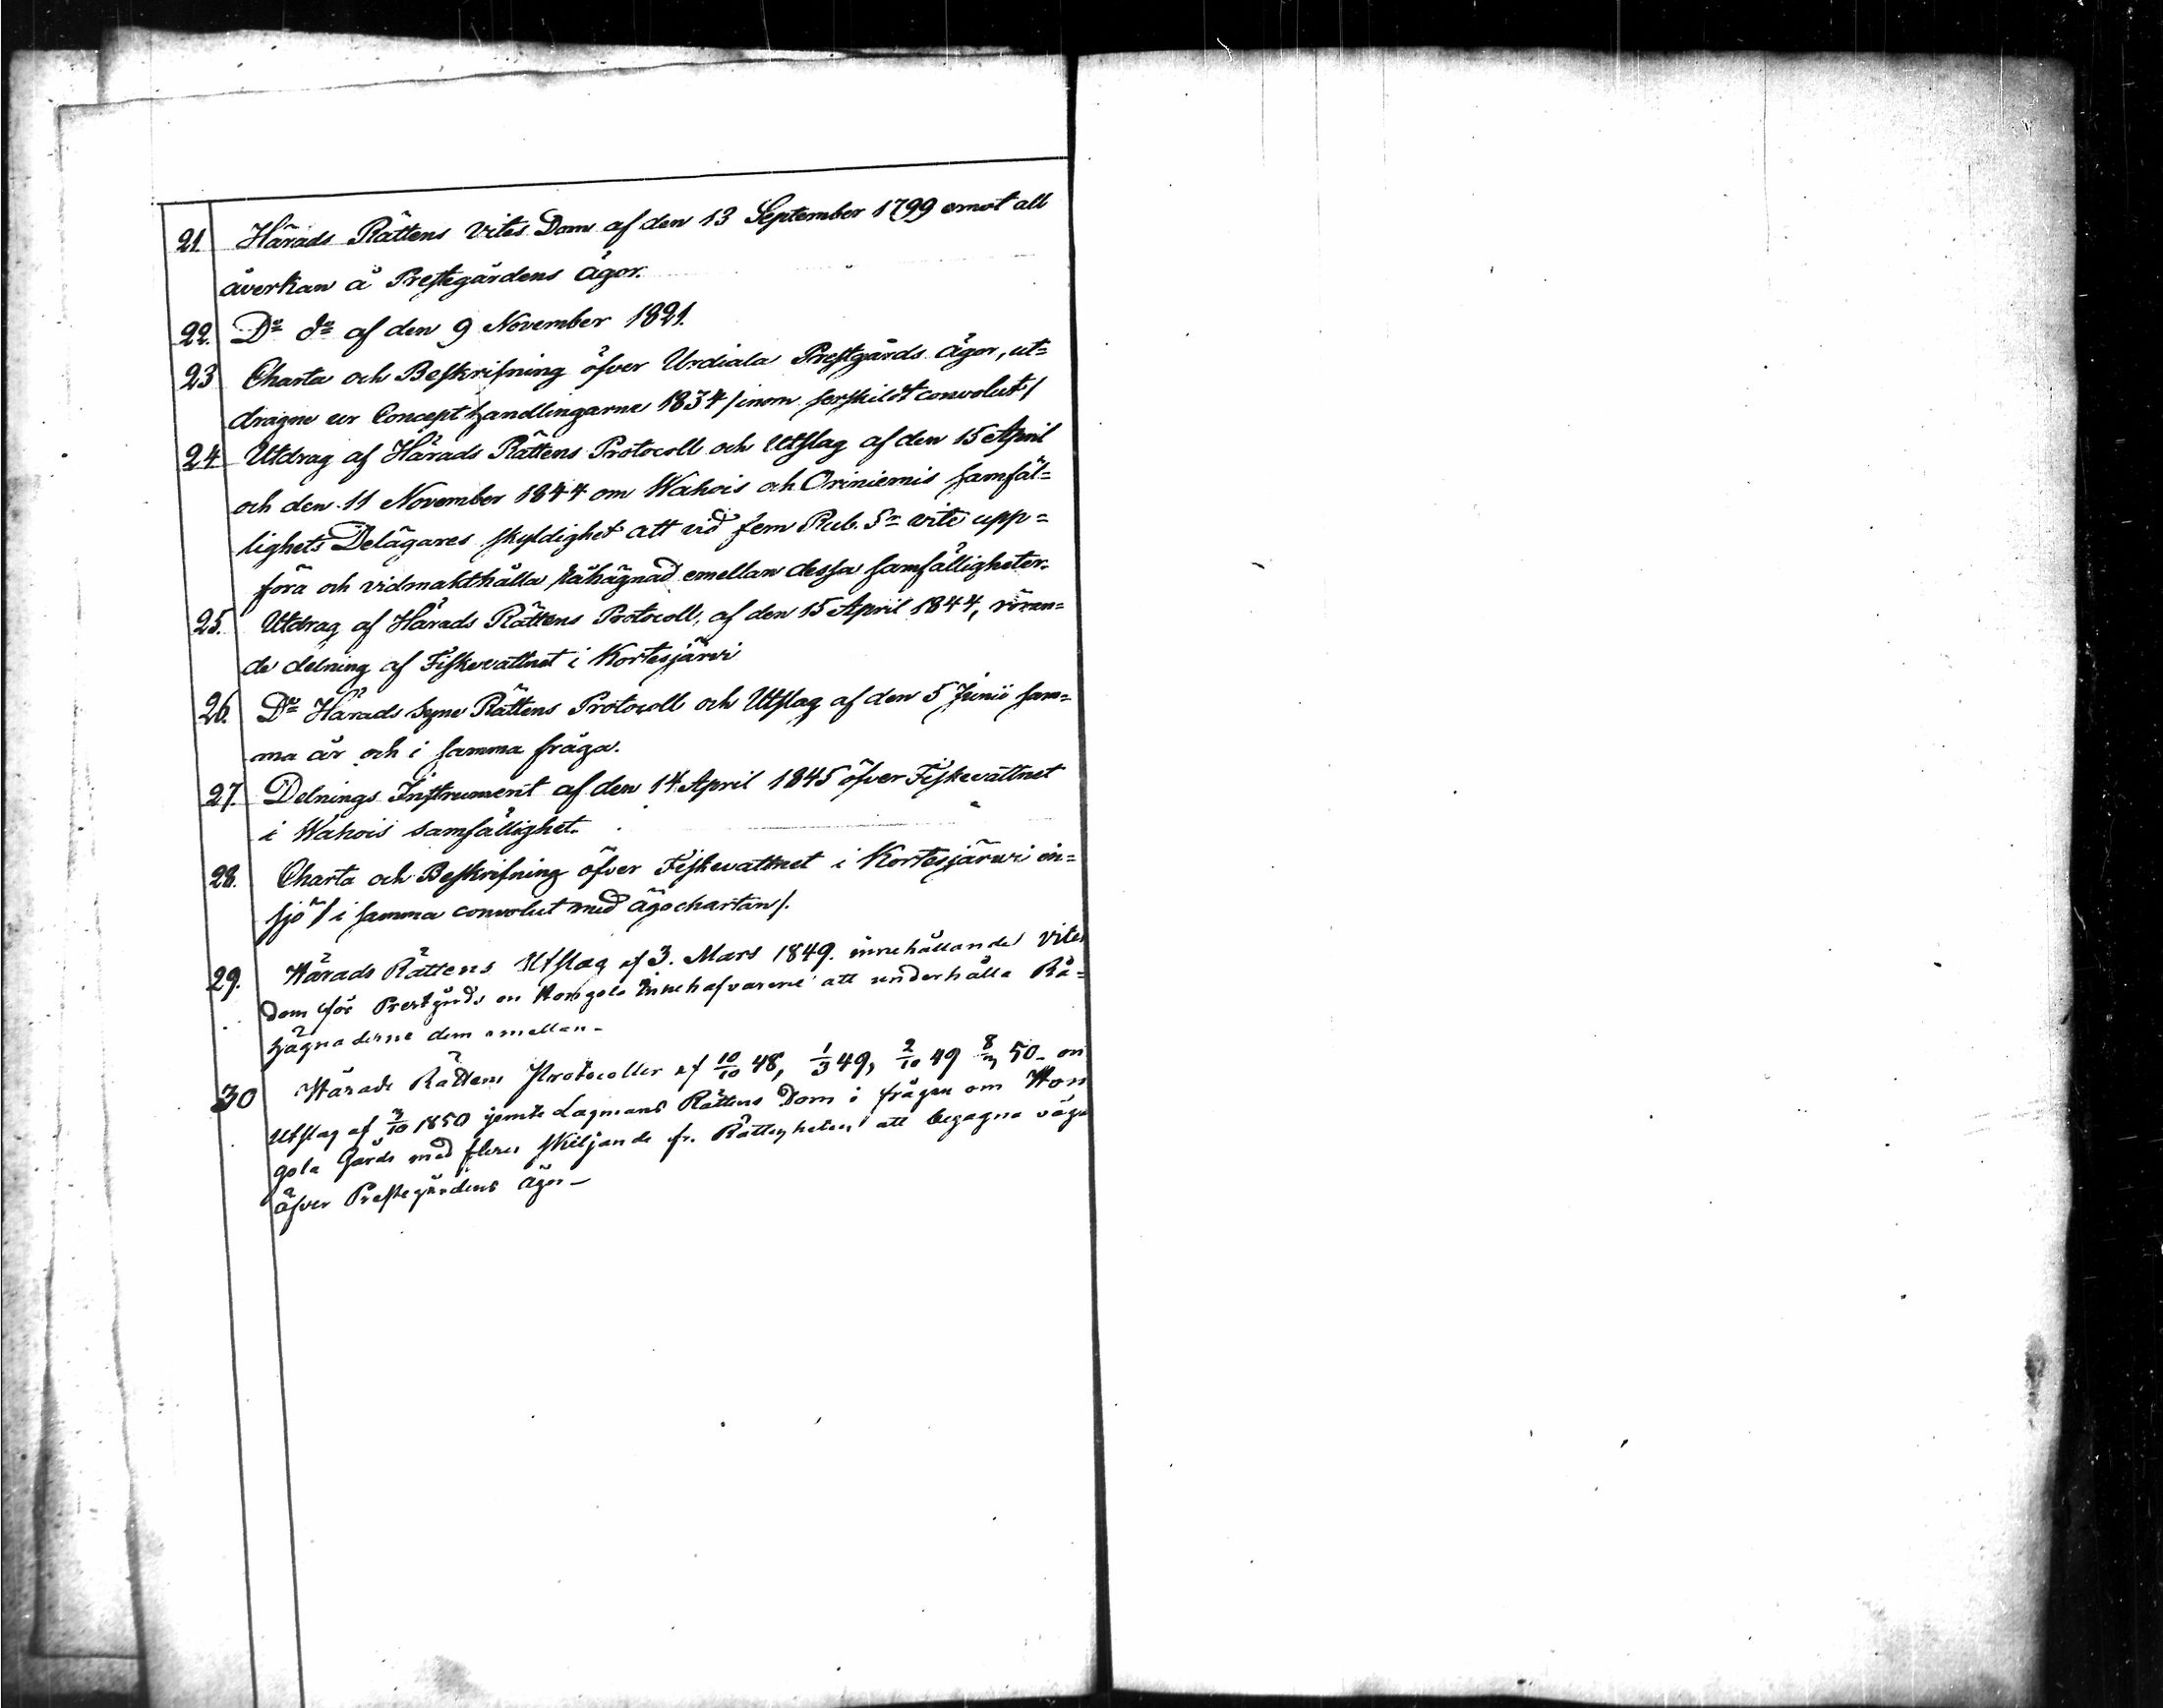 21. Härads Rättens Vites Dom af den 13 September 1799 emot all
åverkan å Prestegårdens ägor.
22. Do do af den 9 November 1821.
23 Charta och Beskrifning öfver Urdiala Prestgårds ägor, ut=
dragne ur Concept handlingarne 1834 /inom serskildt convolut/
24 Utdrag af Härads Rättens Protocoll och Utslag af den 15 April
och den 11 November 1844 om Wahois och Oriniemis samfäl=
lighets Delägares skyldighet att vid fem Rub. Sr vite upp=
föra och vidmakthålla råhägnad emellan dessa samfälligheter.
25. Utdrag af Härads Rättens Protocoll, af den 15 April 1844, röran=
de delning af Fiskevattnet i Kortesjärvi
26. Do Härads Syne Rättens Protocoll och Utslag af den 5 Junii sam=
ma år och i samma fråga.
27. Delnings Instrument af den 14 April 1845 öfver Fiskevattnet
i Wahois samfällighet.
28. Charta och Beskrifning öfver Fiskevattnet i Kortesjärvi in=
sjö /i samma convolut med ägochartan/.
29. Härads Rättens Utslag af 3. Mars 1849. innehållande Vites
dom för Prestgårds on Hongola Innehafvarene att underhålla Rå=
hägnaderne dem emellan-
30 Härads Rättens Protocoller af 10/10 48, 1/3 49, 2/10 49 8/3 50- on
Utslag af 3/10 1850 jemte Lagmans Rättens Dom i frågan om Hon
gola Gårds med fleres skiljande fr. Rättigheten att begagna väge
öfver Prestegårdens ägor-